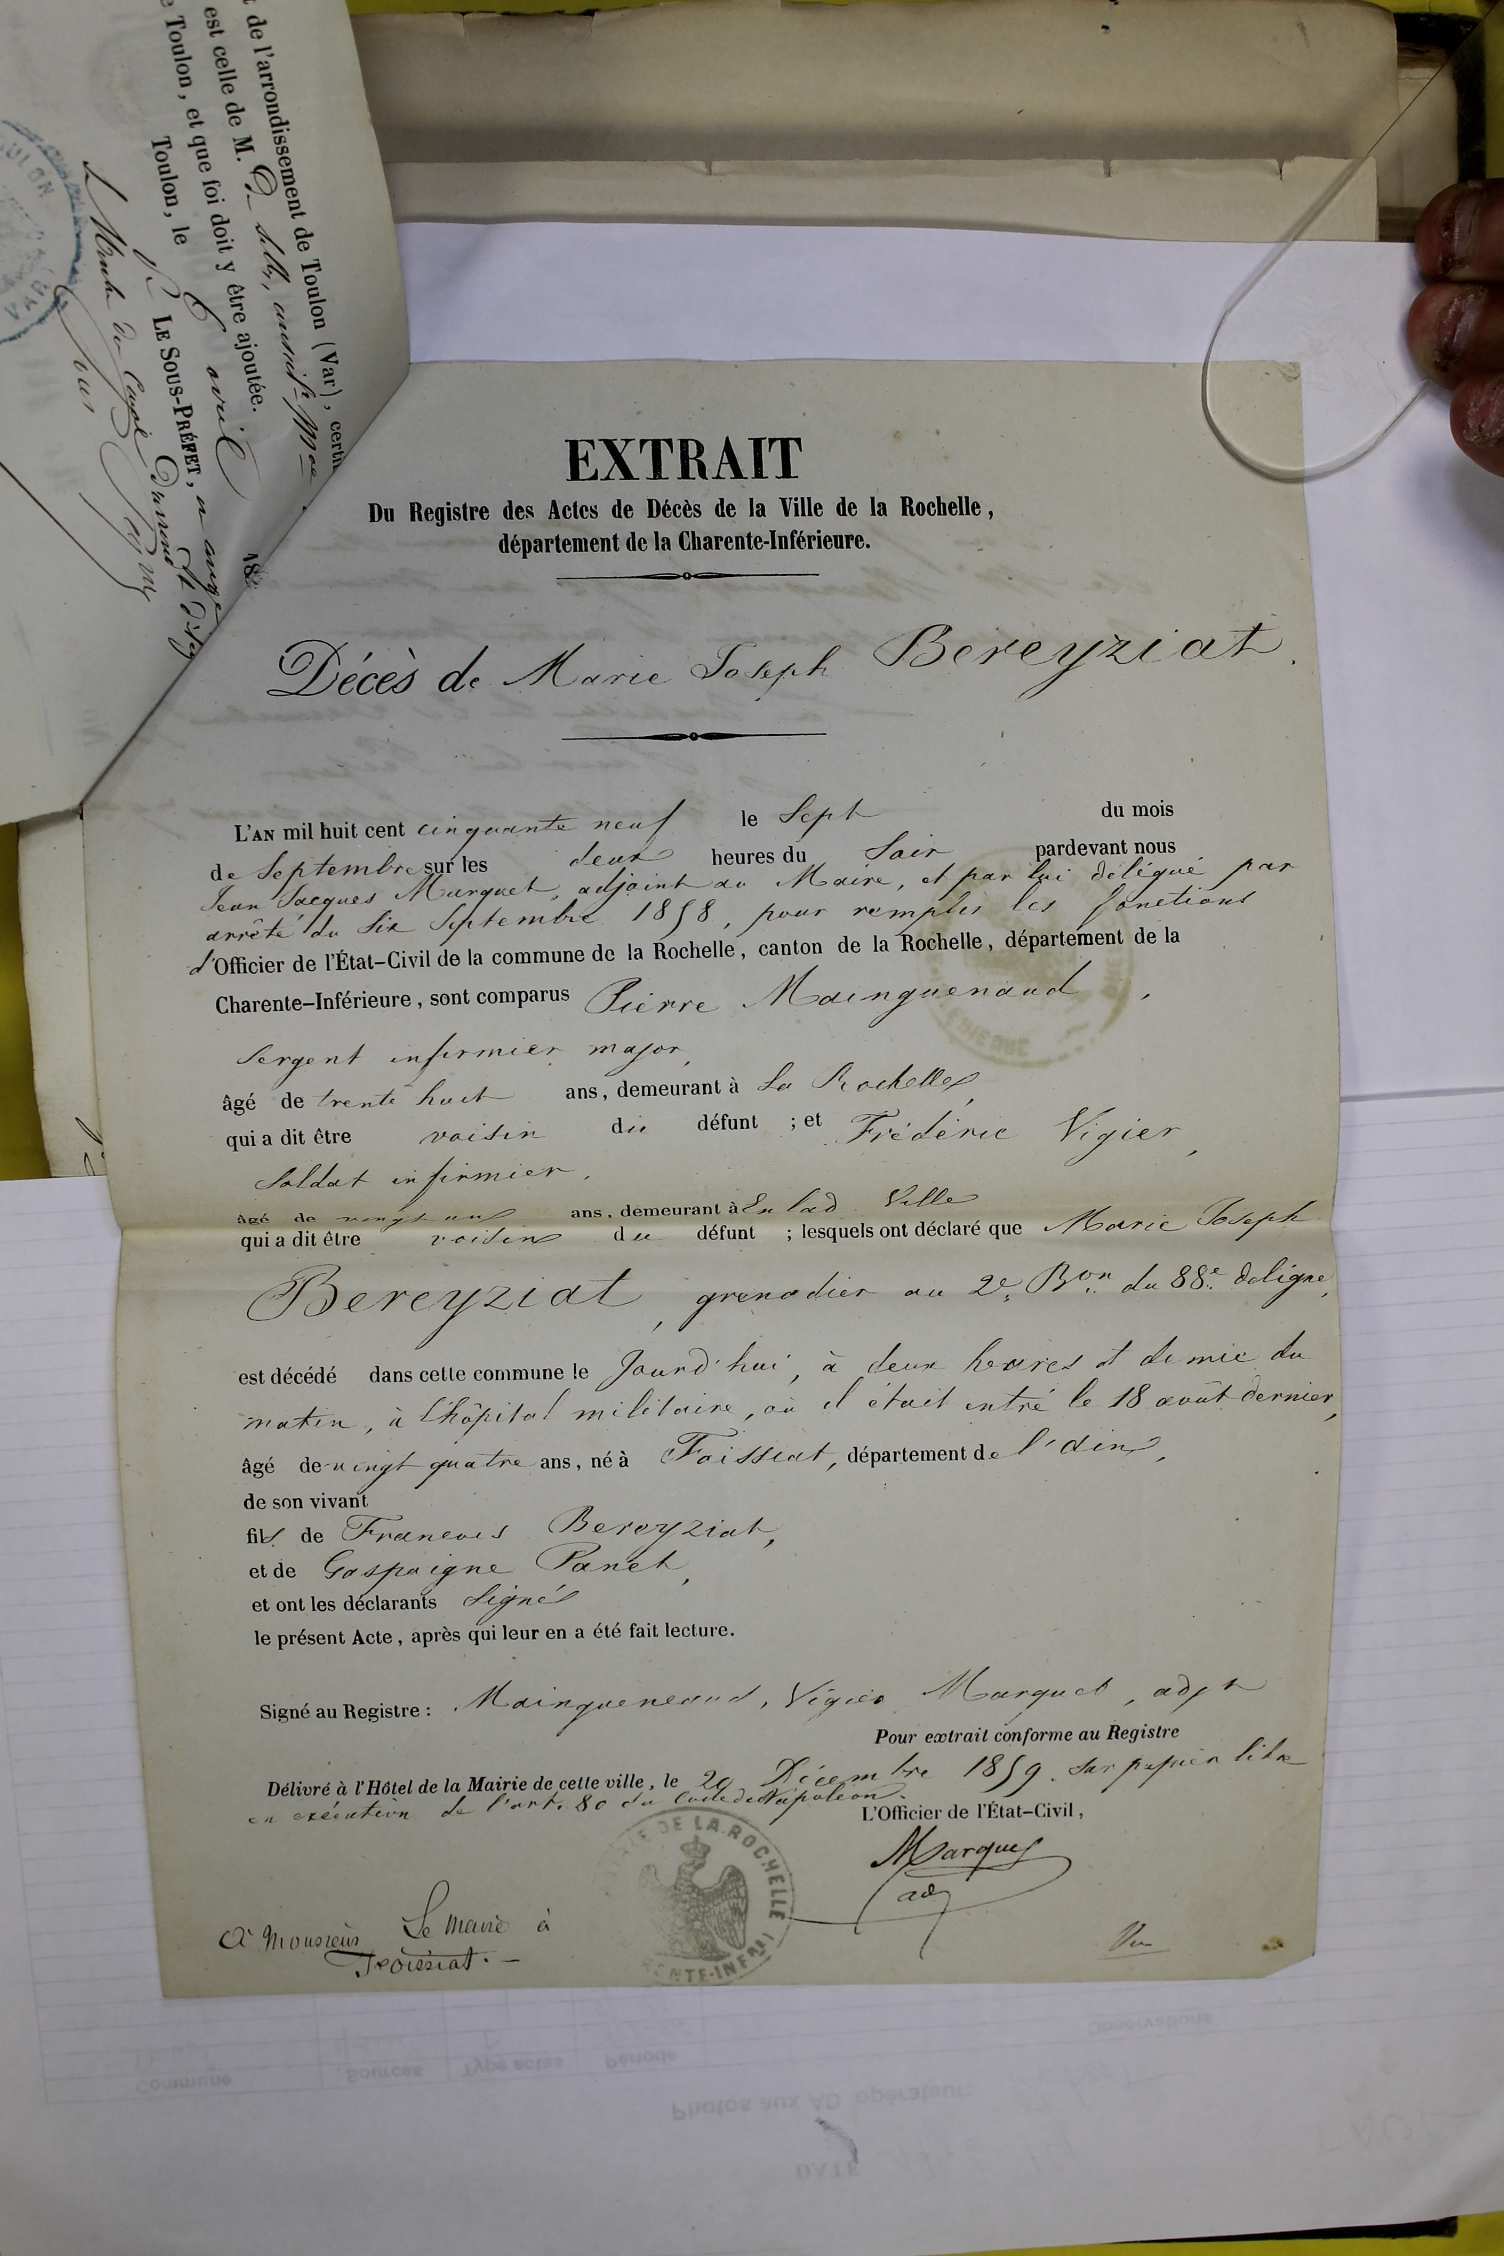 t de l'arrondissement de Toulon (Var), certi
est celle de M.
e Toulon, et que foi doit y être ajoutée.
Toulon, le 6 avril 18
LE SOUS-PRÉFET,
EXTRAIT
Du Registre des Actes de Décès de la Ville de la Rochelle,
département de la Charente-Inférieure.
Décès de Marie Joseph Bereyziat.
L'AN mil huit cent cinquante neuf le Sept du mois
de Septembre sur les deux heures du Soir pardevant nous
Jean Jacques Marquet, adjoint au Maire, et par lui délégué par
arrêté du Six Septembre 1858, pour remplir les fonctions
d'Officier de l'État-Civil de la commune de la Rochelle, canton de la Rochelle, département de la
Charente-Inférieure, sont comparus Pierre Mainguenaud,
Sergent infirmier major,
âgé de trente huit ans, demeurant à La Rochelle,
qui a dit être voisin du défunt ; et Frédéric Vigier,
Soldat infirmier,
âgé de vingt ans, demeurant à En lad Ville
qui a dit être voisin du défunt ; lesquels ont déclaré que Marie Joseph
Bereyziat, grenadier au 2e Bon du 88e de ligne,
est décédé dans cette commune le Jourd'hui, à deux heures et demie du
matin, à l'hôpital militaire, où il était entré le 18 août dernier,
âgé de vingt quatre ans, né à Foissiat, département de l'ain,
de son vivant
fils de Francois Bereyziat,
et de Gaspaigne Panet,
et ont les déclarants Signés
le présent Acte, après qui leur en a été fait lecture.
Signé au Registre : Maingueneaud, Vigier Marquet, adjt
Pour extrait conforme au Registre
Délivré à l'Hôtel de la Mairie de cette ville, le 20 Décembre 1859. Sur papier libre
en exécution de l'art. 80 du Code Napoléon.
L'Officier de l'État-Civil,
Marquet
adj
MAIRIE DE LA ROCHELLE
CHENTE-INFRE
A Monsieur Le Maire à
Foissiat.
Vu